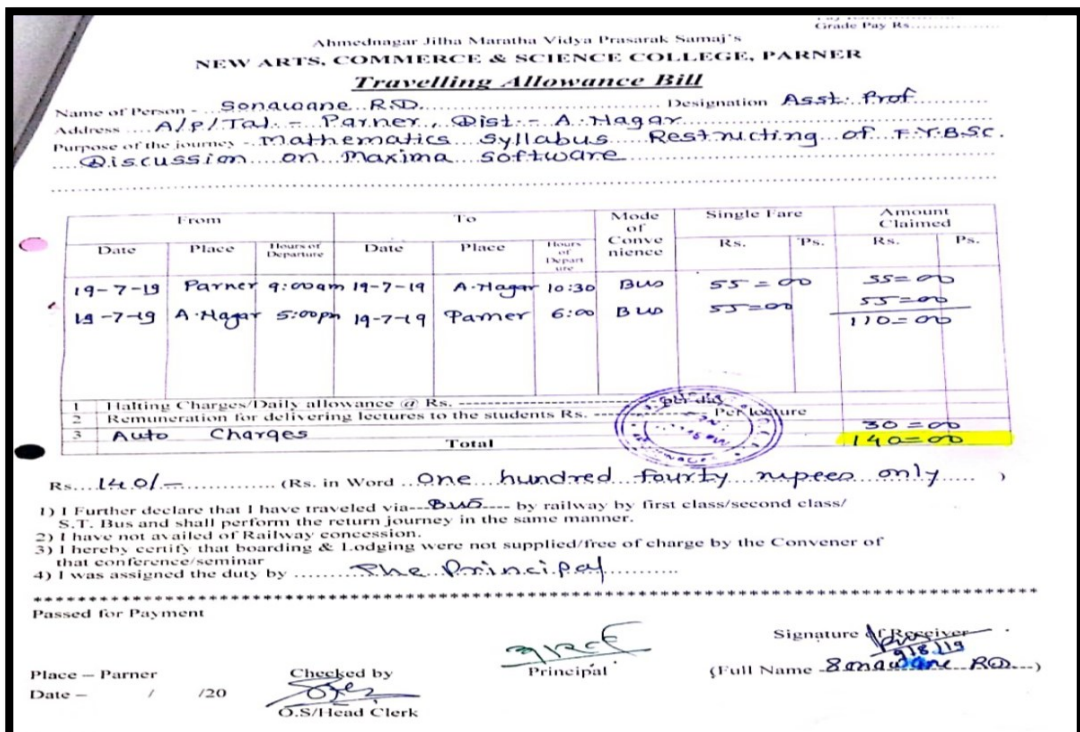 Grade Pay Rs...............
Ahmednagar Jilha Maratha Vidya Prasarak Samaj's
NEW ARTS, COMMERCE & SCIENCE COLLEGE, PARNER
Travelling Allowance Bill
Name of Person - Sonawane R.D. Designation Asst. Prof
Address A/p/Tal. - Parner, Dist. - A.Nagar
Purpose of the journey - Mathematics Syllabus Restructing of F.Y.BSC.
Discussion on Maxima Software
From To Mode of Conve nience Single Fare Amount Claimed
Date Place Hours of Departure Date Place Hours of Depart ure Rs. Ps. Rs. Ps.
19-7-19 Parner 9:00am 19-7-19 A.Nagar 10:30 Bus 55=00 55=00
19-7-19 A.Nagar 5:00pm 19-7-19 Parner 6:00 Bus 55=00 55=00
110=00
1 Halting Charges/Daily allowance @ Rs. --------------------
2 Remuneration for delivering lectures to the students Rs. -------------------- Per lecture
3 Auto Charges 30=00
Total 140=00
Rs. 140/- (Rs. in Word One hundred fourty rupees only )
1) I Further declare that I have traveled via---Bus---- by railway by first class/second class/
S.T. Bus and shall perform the return journey in the same manner.
2) I have not availed of Railway concession.
3) I hereby certify that boarding & Lodging were not supplied/free of charge by the Convener of
that conference/seminar
4) I was assigned the duty by The Principal
Passed for Payment
Signature of Receiver
9/8/19
Place – Parner Checked by Principal (Full Name Sonawane RD )
Date – / /20
O.S/Head Clerk